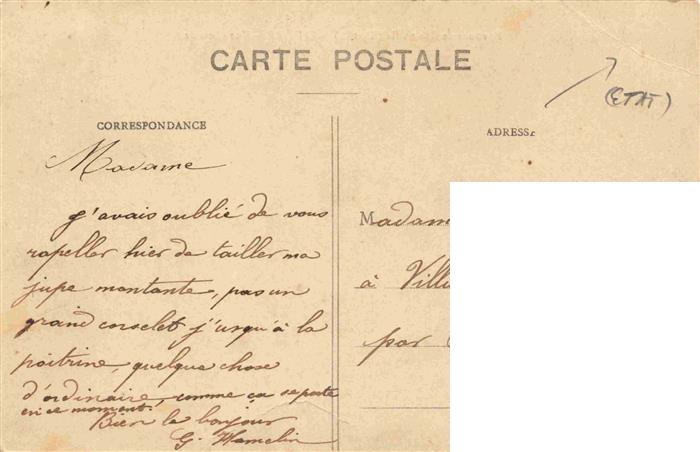 CARTE POSTALE
(ETAT)
CORRESPONDANCE
ADRESSE
Madame
j'avais oublié de vous
rapeller hier de tailler ma
jupe montante, pas un
grand corselet j'usqu'à la
poitrine, quelque chose
d'ordinaire, comme ça se porte
en ce moment.
Bien le bonjour
G. Hamelin
Madam
à Vill
par